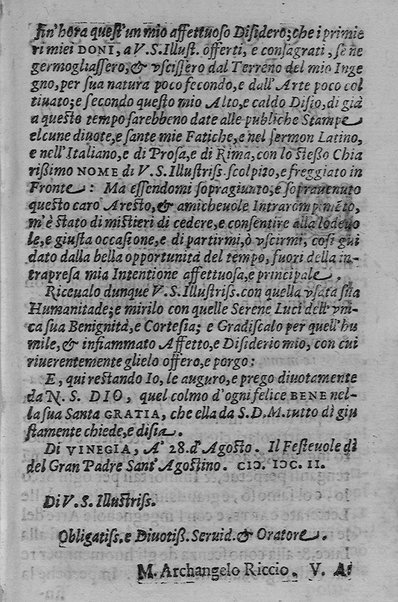 fin'hora quest'un mio affettuoso Disidero; che i primie
ri miei DONI, a V.S.Illust. offerti, e consagrati, se ne
germogliassero, & vscissero dal Terreno del mio Inge
gno, per sua natura poco fecondo, e dall'Arte poco col
tiuato; e secondo questo mio Alto, e caldo Disio, di già
a questo tempo sarebbeno date alle publiche Stampe
alcune diuote, e sante mie Fatiche, e nel sermon Latino,
e nell'Italiano, e di Prosa, e di Rima, con lo stesso Chia
rissimo NOME di V.S.Illustriss. scolpito, e freggiato in
Fronte: Ma essendomi sopragiunto, e soprauenuto
questo caro Aresto, & amicheuole Intrarompimēto,
m'è stato di mistieri di cedere, e consentire alla lodeuo
le, e giusta occasione, e di partirmi, ò vscirmi, così gui
dato dalla bella opportunità del tempo, fuori della in-
trapresa mia Intentione affettuosa, e principale.
Riceualo dunque V.S.Illustriss. con quella vsata sua
Humanitade; e mirilo con quelle Serene Luci dell'vni-
ca sua Benignità, e Cortesia; e Gradiscalo per quell'hu
mile, & infiammato Affetto, e Disiderio mio, con cui
riuerentemente glielo offero, e porgo:
E, qui restando Io, le auguro, e prego diuotamente
da N. S. DIO, quel colmo d'ogni felice BENE nel-
la sua Santa GRATIA, che ella da S.D.M. tutto dì giu
stamente chiede, e disia.
Di VINEGIA, A' 28. d'Agosto. Il Festeuole dì
del Gran Padre Sant'Agostino. CIↃ. IↃC. II.
Di V. S. Illustriss.
Obligatiss. e Diuotiss. Seruid. & Oratore.
M. Archangelo Riccio. V. A.